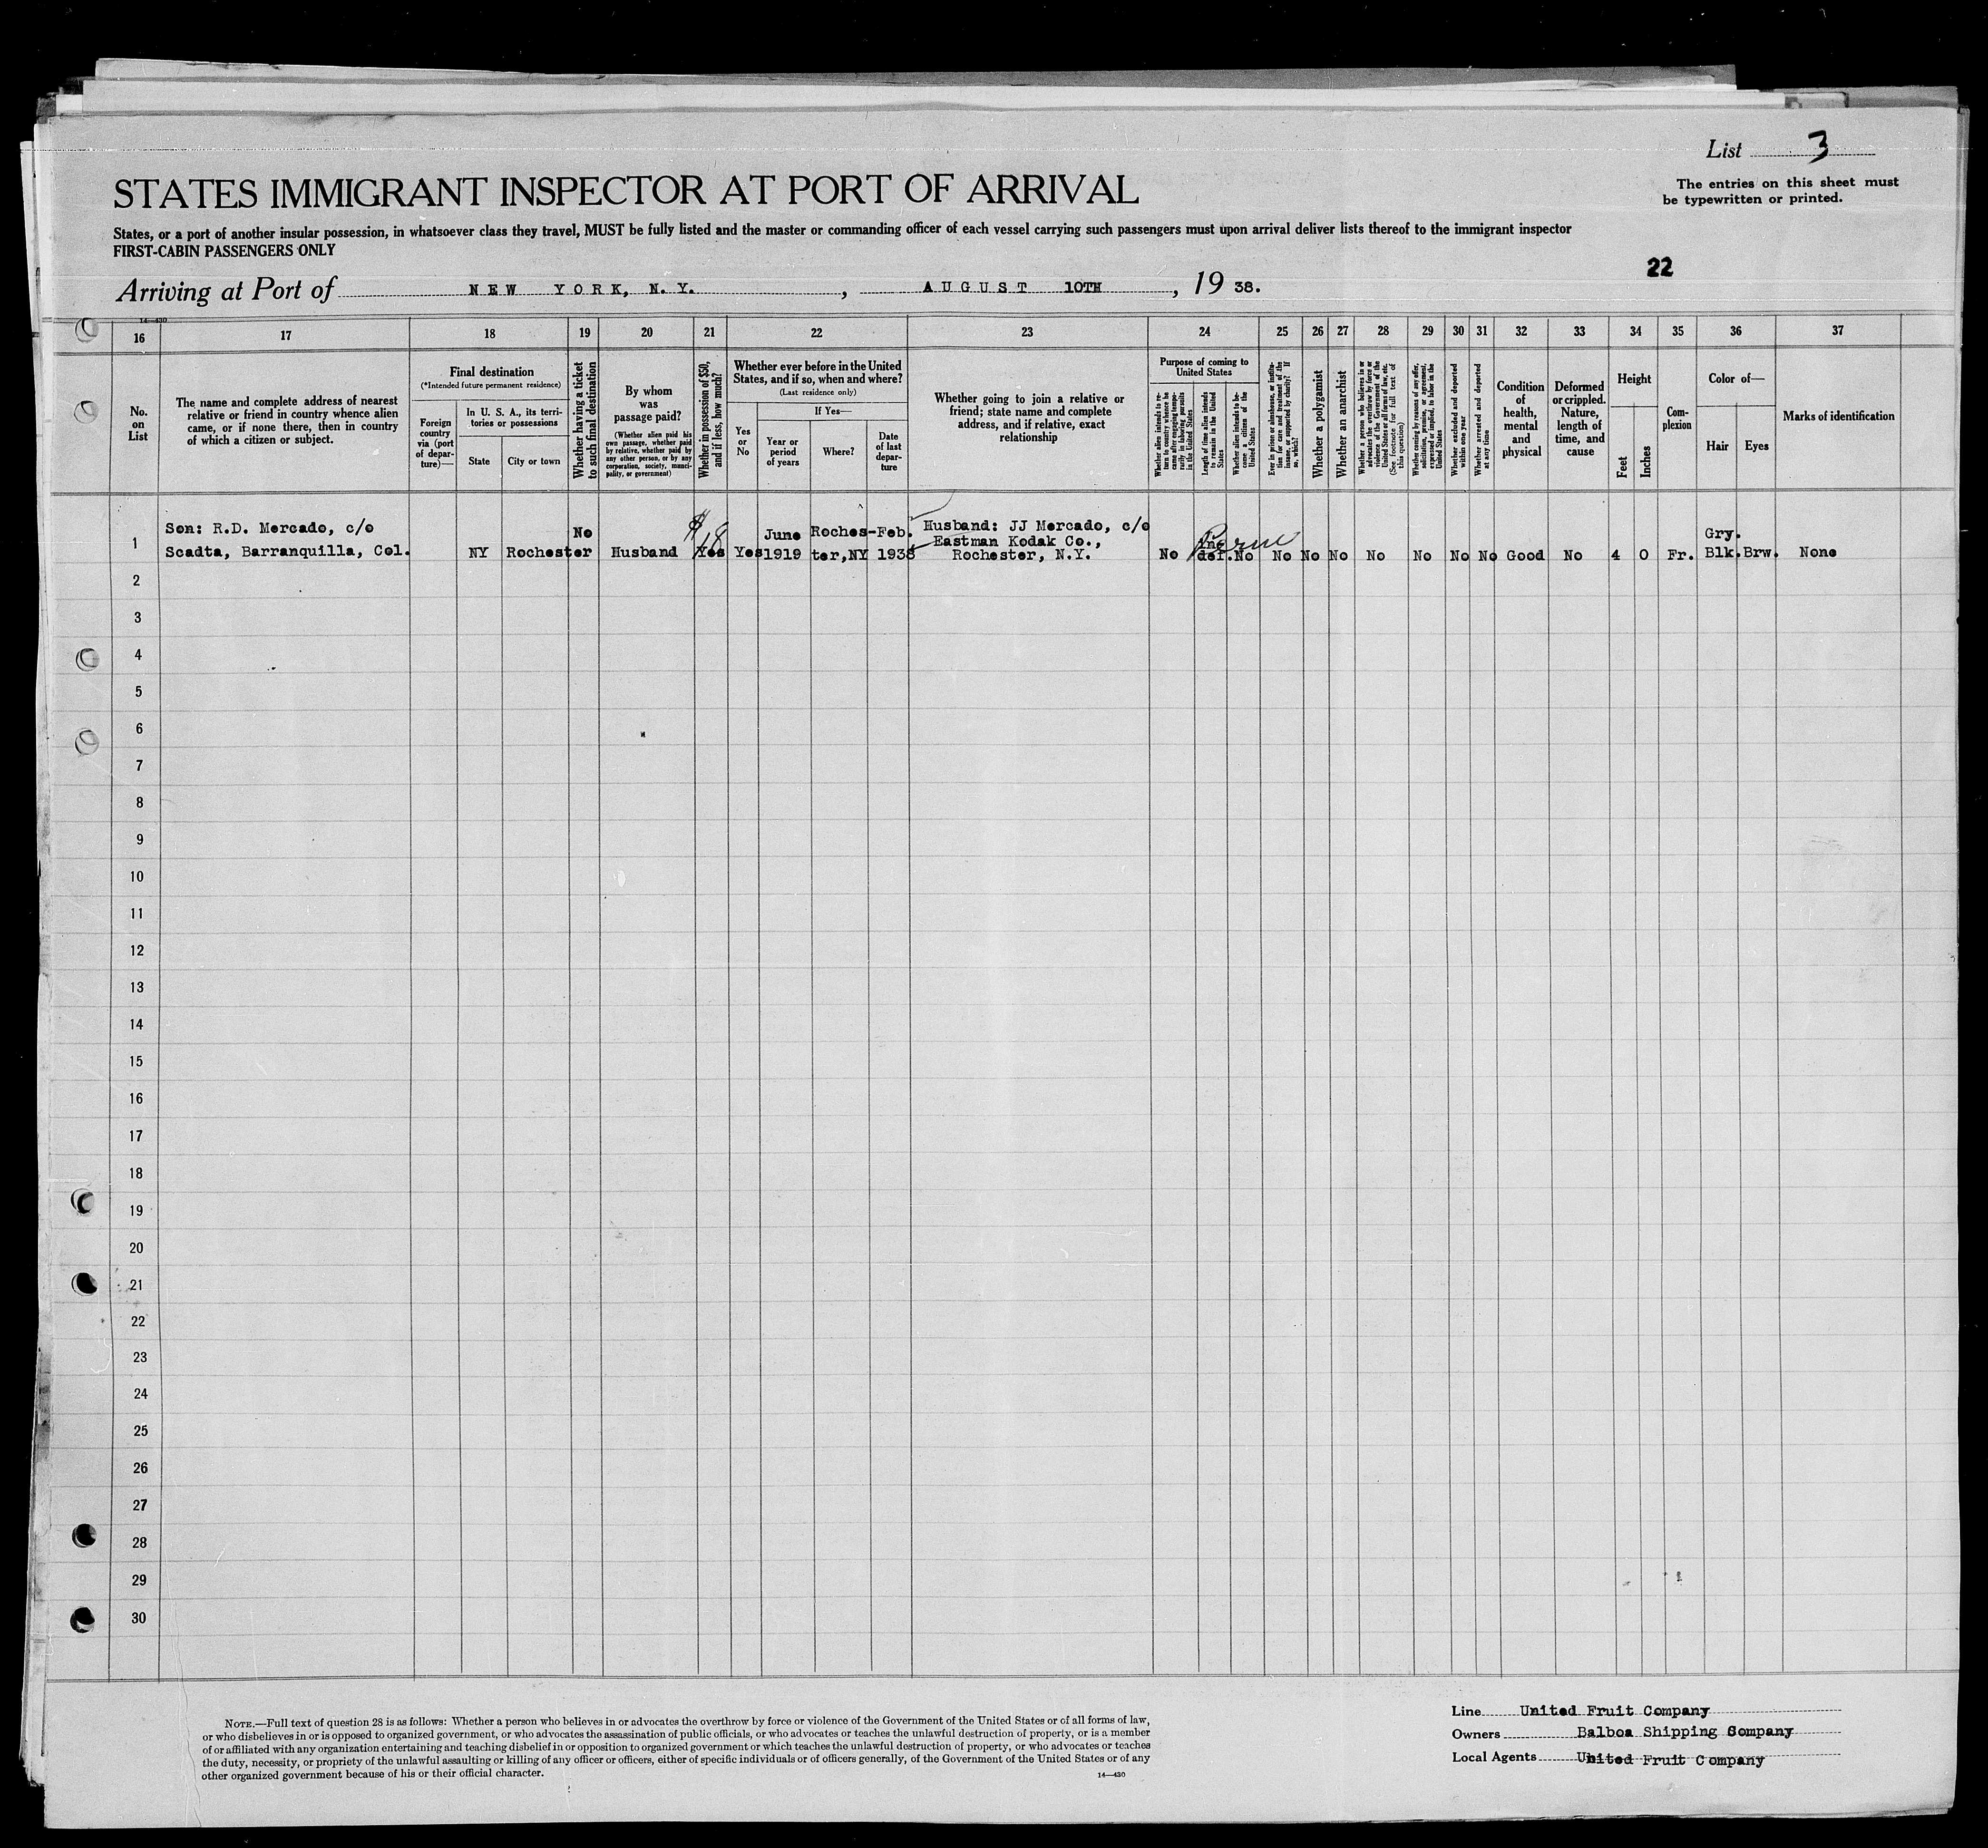 List 3
The entries on this sheet must
be typewritten or printed.
STATES IMMIGRANT INSPECTOR AT PORT OF ARRIVAL
States, or a port of another insular possession, in whatsoever class they travel, MUST be fully listed and the master or commanding officer of each vessel carrying such passengers must upon arrival deliver lists thereof to the immigrant inspector
FIRST-CABIN PASSENGERS ONLY
22
Arriving at Port of NEW YORK, N.Y., AUGUST 10TH, 19 38.
14—430
16 17 18 19 20 21 22 23 24 25 26 27 28 29 30 31 32 33 34 35 36 37
No.
on
List
The name and complete address of nearest
relative or friend in country whence alien
came, or if none there, then in country
of which a citizen or subject.
Final destination
(*Intended future permanent residence)
Foreign
country
via (port
of depar-
ture)—
In U. S. A., its terri-
tories or possessions
State
City or town
Whether having a ticket
to such final destination
By whom
was
passage paid?
(Whether alien paid his
own passage, whether paid
by relative, whether paid by
any other person, or by any
corporation, society, munici-
pality, or government)
Whether in possession of $50,
and if less, how much?
Whether ever before in the United
States, and if so, when and where?
(Last residence only)
Yes
or
No
If Yes—
Year or
period
of years
Where?
Date
of last
depar-
ture
Whether going to join a relative or
friend; state name and complete
address, and if relative, exact
relationship
Purpose of coming to
United States
Whether alien intends to re-
turn to country whence he
came after engaging tempo-
rarily in laboring pursuits
in the United States
Length of time alien intends
to remain in the United
States
Whether alien intends to be-
come a citizen of the
United States
Ever in prison or almshouse, or institu-
tion for care and treatment of the
insane, or supported by charity? If
so, which?
Whether a polygamist
Whether an anarchist
Whether a person who believes in or
advocates the overthrow by force or
violence of the Government of the
United States or all forms of law, etc.
(See footnote for full text of
this question)
Whether coming by reasons of any offer,
solicitation, promise, or agreement,
expressed or implied, to labor in the
United States
Whether excluded and deported
within one year
Whether arrested and deported
at any time
Condition
of
health,
mental
and
physical
Deformed
or crippled.
Nature,
length of
time, and
cause
Height
Feet
Inches
Com-
plexion
Color of—
Hair
Eyes
Marks of identification
1
Son: R.D. Mercado, c/o
Scadta, Barranquilla, Col.
NY
Rochester
No
Husband
$
Yes
Yes
June
1919
Roches-
ter,NY
Feb.
1938
Husband: JJ Mercado, c/o
Eastman Kodak Co.,
Rochester, N.Y.
No
Ind
def.
No No No No No No No No Good No 4 0 Fr.
Gry.
Blk.
Brw.
None
2
3
4
5
6
7
8
9
10
11
12
13
14
15
16
17
18
19
20
21
22
23
24
25
26
27
28
29
30
NOTE.—Full text of question 28 is as follows: Whether a person who believes in or advocates the overthrow by force or violence of the Government of the United States or of all forms of law,
or who disbelieves in or is opposed to organized government, or who advocates the assassination of public officials, or who advocates or teaches the unlawful destruction of property, or is a member
of or affiliated with any organization entertaining and teaching disbelief in or opposition to organized government or which teaches the unlawful destruction of property, or who advocates or teaches
the duty, necessity, or propriety of the unlawful assaulting or killing of any officer or officers, either of specific individuals or of officers generally, of the Government of the United States or of any
other organized government because of his or their official character.
14—430
Line United Fruit Company
Owners Balboa Shipping Company
Local Agents United Fruit Company